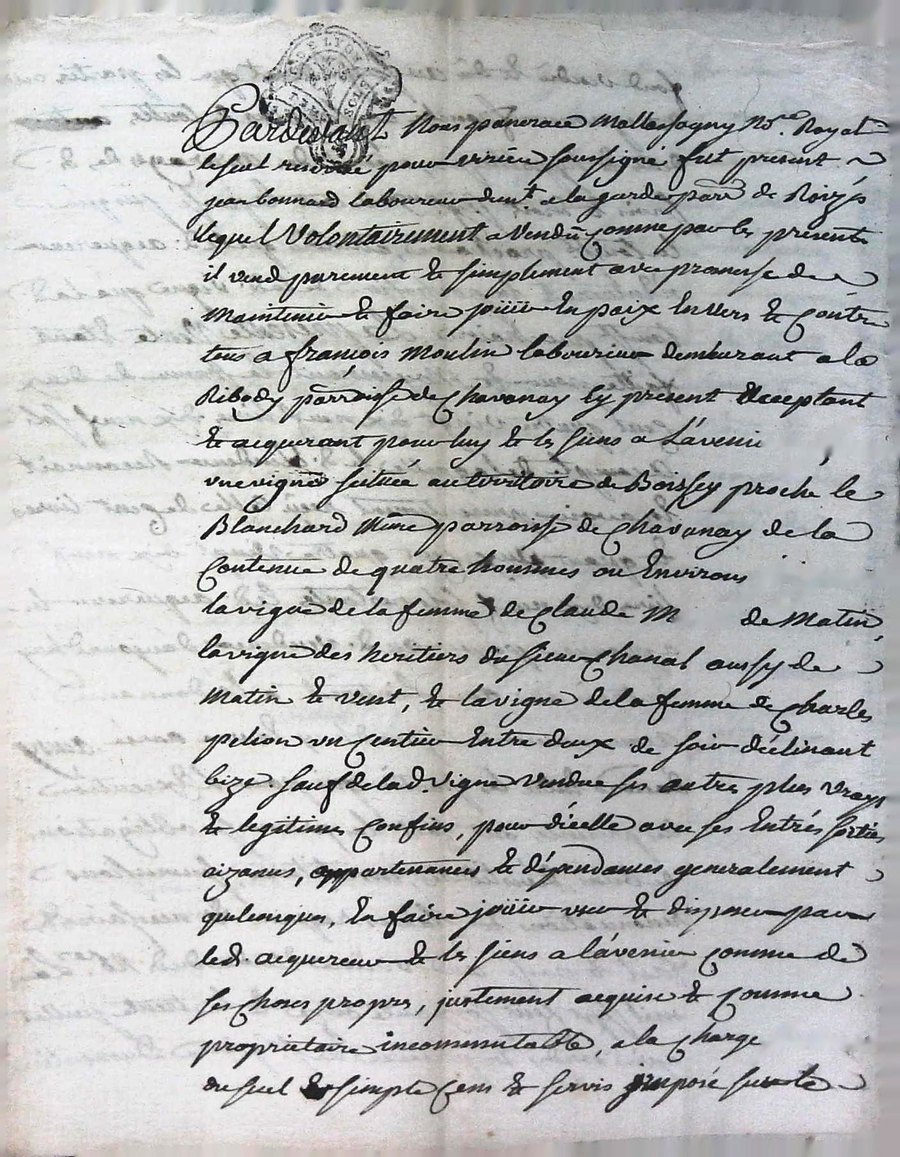 Pardevant Nous pancrace Mallassagny No.re Royal
le seul reservé pour virieu soussigné fut present
jean bonnard laboureur demt. a la garde parr. de Roizés
lequel Volontairement a Vendu comme par les presente
il vend purement & simplement avec promesse de
Maintenir & faire joüir En paix Envers & Contre
tous a françois Moulin laboureur demeurant a la
Ribody parroisse de Chavanay Cy present acceptant
& acquerant pour luy & les siens a L'avenir
une vigne située au territoire de Boissey proche le
Blanchard Même parroisse de Chavanay de la
Contenue de quatre hommes ou Environs
la vigne de la femme de Claude M de Matin,
la vigne des heritiers du sieur Chanal aussy de
Matin & vent, & la vigne de la femme de Charles
pelion un sentier Entre deux de soir déclinant
bize. sauf de lad. Vigne vendue ses autres plus vrays
& legitimes Confins, pour d'icelle avec ses Entrés sorties
aizances, appartenances & dépendances generalement
quelconques, En faire joüir user & disposer par
led. acquereur & les siens a l'avenir comme de
ses choses propres, justement acquise & comme
propriétaire incommutable, a la Charge
du seul & simple Cens & servis imposé sur le